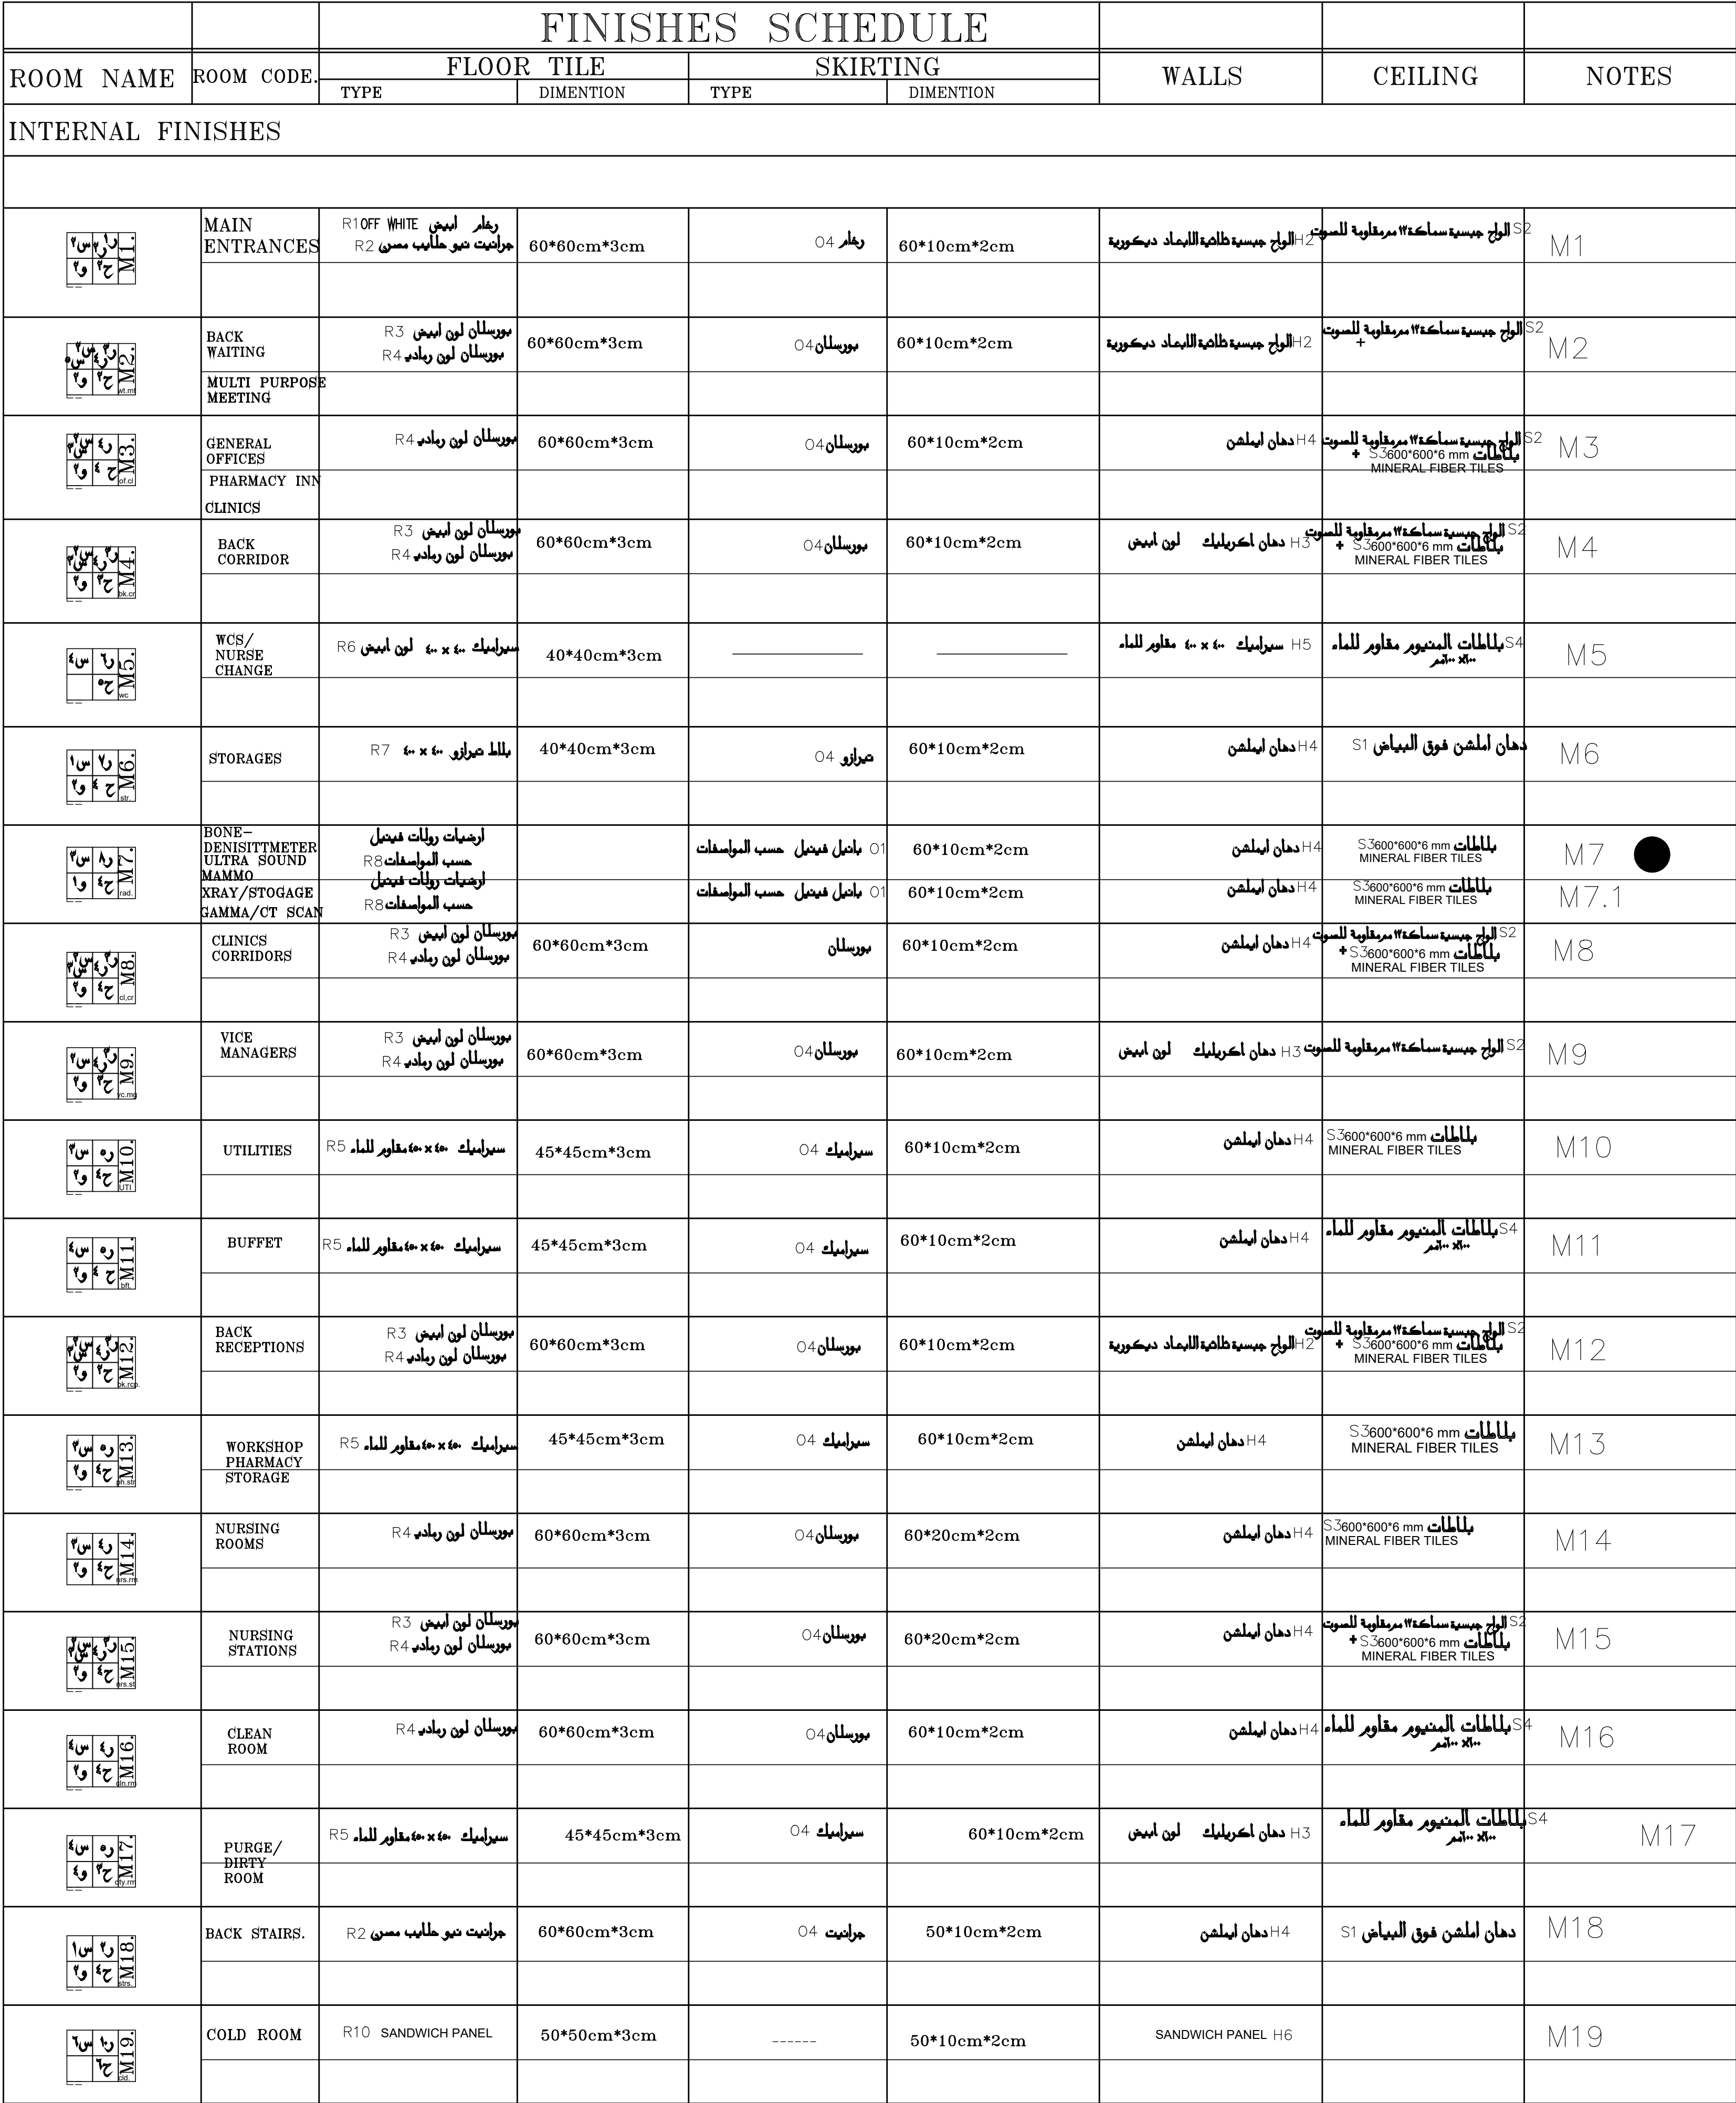 FINISHES SCHEDULE
ROOM NAME ROOM CODE. FLOOR TILE SKIRTING WALLS CEILING NOTES
TYPE DIMENTION TYPE DIMENTION
INTERNAL FINISHES
M1. MAIN ENTRANCES
R1 OFF WHITE رخام ابيض
R2 جرانيت نيو حلايب مصرى
60*60cm*3cm
رخام 04
60*10cm*2cm
الواح جبسية ثلاثية الابعاد ديكورية H2
الواح جبسية سماكة ١٢ مم مقاومة للصوت S2
M1
M2. wt.mt
BACK WAITING
MULTI PURPOSE MEETING
R3 بورسلان لون ابيض
R4 بورسلان لون رمادي
60*60cm*3cm
بورسلان 04
60*10cm*2cm
الواح جبسية ثلاثية الابعاد ديكورية H2
الواح جبسية سماكة ١٢ مم مقاومة للصوت S2
+
M2
M3. of.cl
GENERAL OFFICES
PHARMACY INN
CLINICS
R4 بورسلان لون رمادي
60*60cm*3cm
بورسلان 04
60*10cm*2cm
دهان ايملشن H4
الواح جبسية سماكة ١٢ مم مقاومة للصوت S2
+ S3 600*600*6 mm بلاطات
MINERAL FIBER TILES
M3
M4. bk.cr
BACK CORRIDOR
R3 بورسلان لون ابيض
R4 بورسلان لون رمادي
60*60cm*3cm
بورسلان 04
60*10cm*2cm
دهان اكريليك لون ابيض H3
الواح جبسية سماكة ١٢ مم مقاومة للصوت S2
+ S3 600*600*6 mm بلاطات
MINERAL FIBER TILES
M4
M5. wc
WCS/ NURSE CHANGE
R6 سيراميك ٤٠٠ x ٤٠٠ لون ابيض
40*40cm*3cm
سيراميك ٤٠٠ x ٤٠٠ مقاوم للماء H5
بلاطات المنيوم مقاوم للماء S4
٦٠٠x ٦٠٠مم
M5
M6. str.
STORAGES
R7 بلاط تيرازو ٤٠٠ x ٤٠٠
40*40cm*3cm
تيرازو 04
60*10cm*2cm
دهان ايملشن H4
دهان املشن فوق البياض S1
M6
M7. rad.
BONE-DENISITTMETER
ULTRA SOUND
MAMMO
ارضيات رولات فينيل
حسب المواصفات R8
بانيل فينيل حسب المواصفات 01
60*10cm*2cm
دهان ايملشن H4
S3 600*600*6 mm بلاطات
MINERAL FIBER TILES
M7
XRAY/STOGAGE
GAMMA/CT SCAN
ارضيات رولات فينيل
حسب المواصفات R8
بانيل فينيل حسب المواصفات 01
60*10cm*2cm
دهان ايملشن H4
S3 600*600*6 mm بلاطات
MINERAL FIBER TILES
M7.1
M8. cl,cr
CLINICS CORRIDORS
R3 بورسلان لون ابيض
R4 بورسلان لون رمادي
60*60cm*3cm
بورسلان
60*10cm*2cm
دهان ايملشن H4
الواح جبسية سماكة ١٢ مم مقاومة للصوت S2
+ S3 600*600*6 mm بلاطات
MINERAL FIBER TILES
M8
M9. vc.mg
VICE MANAGERS
R3 بورسلان لون ابيض
R4 بورسلان لون رمادي
60*60cm*3cm
بورسلان 04
60*10cm*2cm
دهان اكريليك لون ابيض H3
الواح جبسية سماكة ١٢ مم مقاومة للصوت S2
M9
M10. UTI
UTILITIES
R5 سيراميك ٤٥٠ x ٤٥٠ مقاوم للماء
45*45cm*3cm
سيراميك 04
60*10cm*2cm
دهان ايملشن H4
S3 600*600*6 mm بلاطات
MINERAL FIBER TILES
M10
M11. bft.
BUFFET
R5 سيراميك ٤٥٠ x ٤٥٠ مقاوم للماء
45*45cm*3cm
سيراميك 04
60*10cm*2cm
دهان ايملشن H4
بلاطات المنيوم مقاوم للماء S4
٦٠٠x ٦٠٠مم
M11
M12. bk.rcp.
BACK RECEPTIONS
R3 بورسلان لون ابيض
R4 بورسلان لون رمادي
60*60cm*3cm
بورسلان 04
60*10cm*2cm
الواح جبسية ثلاثية الابعاد ديكورية H2
الواح جبسية سماكة ١٢ مم مقاومة للصوت S2
+ S3 600*600*6 mm بلاطات
MINERAL FIBER TILES
M12
M13. ph.str
WORKSHOP PHARMACY STORAGE
R5 سيراميك ٤٥٠ x ٤٥٠ مقاوم للماء
45*45cm*3cm
سيراميك 04
60*10cm*2cm
دهان ايملشن H4
S3 600*600*6 mm بلاطات
MINERAL FIBER TILES
M13
M14. nrs.rm
NURSING ROOMS
R4 بورسلان لون رمادي
60*60cm*3cm
بورسلان 04
60*20cm*2cm
دهان ايملشن H4
S3 600*600*6 mm بلاطات
MINERAL FIBER TILES
M14
M15. nrs.st
NURSING STATIONS
R3 بورسلان لون ابيض
R4 بورسلان لون رمادي
60*60cm*3cm
بورسلان 04
60*20cm*2cm
دهان ايملشن H4
الواح جبسية سماكة ١٢ مم مقاومة للصوت S2
+ S3 600*600*6 mm بلاطات
MINERAL FIBER TILES
M15
M16. cln.rm
CLEAN ROOM
R4 بورسلان لون رمادي
60*60cm*3cm
بورسلان 04
60*10cm*2cm
دهان ايملشن H4
بلاطات المنيوم مقاوم للماء S4
٦٠٠x ٦٠٠مم
M16
M17. dty.rm
PURGE/ DIRTY ROOM
R5 سيراميك ٤٥٠ x ٤٥٠ مقاوم للماء
45*45cm*3cm
سيراميك 04
60*10cm*2cm
دهان اكريليك لون ابيض H3
بلاطات المنيوم مقاوم للماء S4
٦٠٠x ٦٠٠مم
M17
M18. strs.
BACK STAIRS.
R2 جرانيت نيو حلايب مصرى
60*60cm*3cm
جرانيت 04
50*10cm*2cm
دهان ايملشن H4
دهان املشن فوق البياض S1
M18
M19. cld.
COLD ROOM
R10 SANDWICH PANEL
50*50cm*3cm
------
50*10cm*2cm
SANDWICH PANEL H6
M19